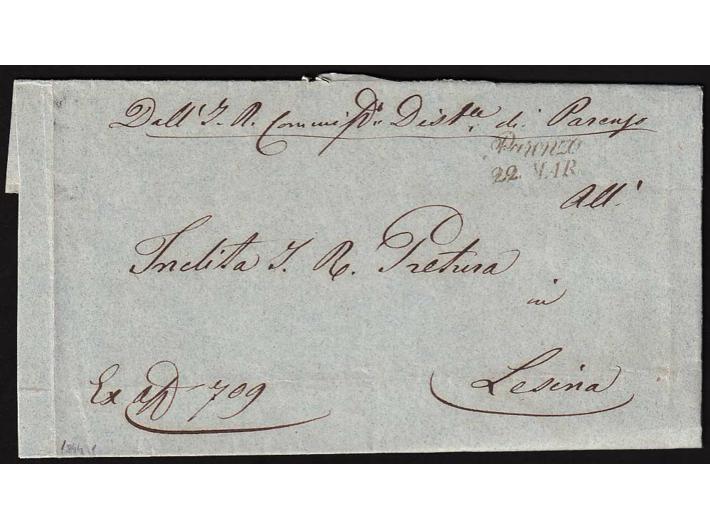 Dall' I. R. Commissº Distle di Parenzo
Parenzo
22 MAR
All'
Inclita I. R. Pretura
in
Lesina
Ex off 709